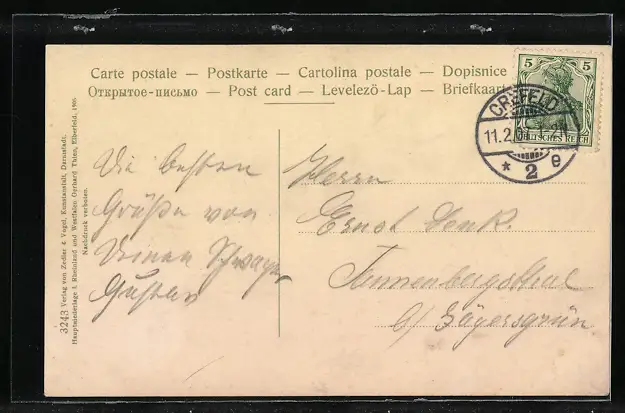 Carte postale — Postkarte — Cartolina postale — Dopisnice
Открытое-письмо — Post card — Levelező-Lap — Briefkaart
5 5
DEUTSCHES REICH
CREFELD
11.2.07. 1-2N
* 2 e
Die besten
Grüße von
Deinem Schwager
Gustav
Herrn
Ernst Denk.
Tannenbergsthal
b/ Jägersgrün
3243 Verlag von Zedler & Vogel, Kunstanstalt, Darmstadt.
Hauptniederlage f. Rheinland und Westfalen Gerhard Thien, Elberfeld.
Nachdruck verboten.